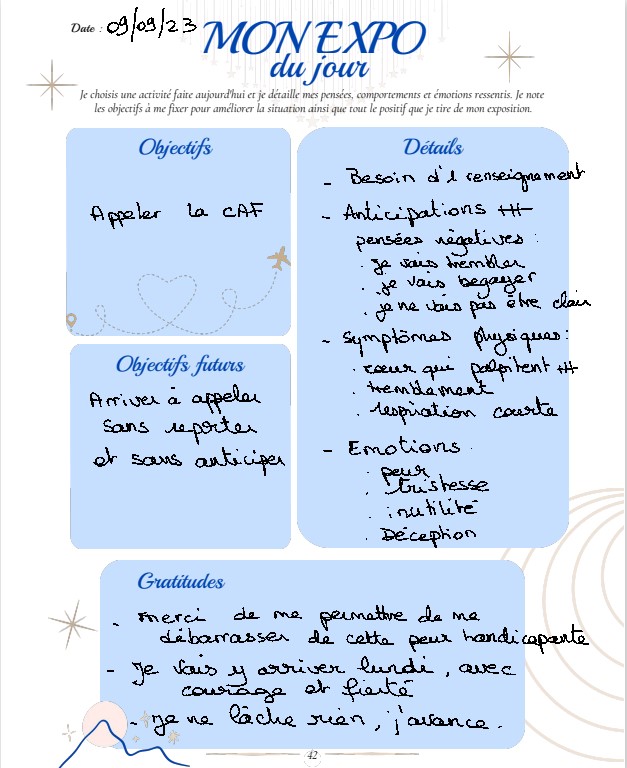 Date : 09/09/23
MON EXPO
du jour
Je choisis une activité faite aujourd'hui et je détaille mes pensées, comportements et émotions ressentis. Je note
les objectifs à me fixer pour améliorer la situation ainsi que tout le positif que je tire de mon exposition.
Objectifs
Appeler la CAF
Détails
- Besoin d'1 renseignement
- Anticipations +++
pensées négatives :
. je vais trembler
. je vais begayer
. je ne vais pas être clair
- Symptômes physiques :
. cœur qui palpitent ++
. tremblement
. respiration courte
- Emotions
. peur
. tristesse
. inutilité
. Déception
Objectifs futurs
Arriver à appeler
sans reporter
et sans anticiper
Gratitudes
- merci de me permettre de me
débarrasser de cette peur handicapante
- Je vais y arriver lundi, avec
courage et fierté
- Je ne lâche rien, j'avance.
42